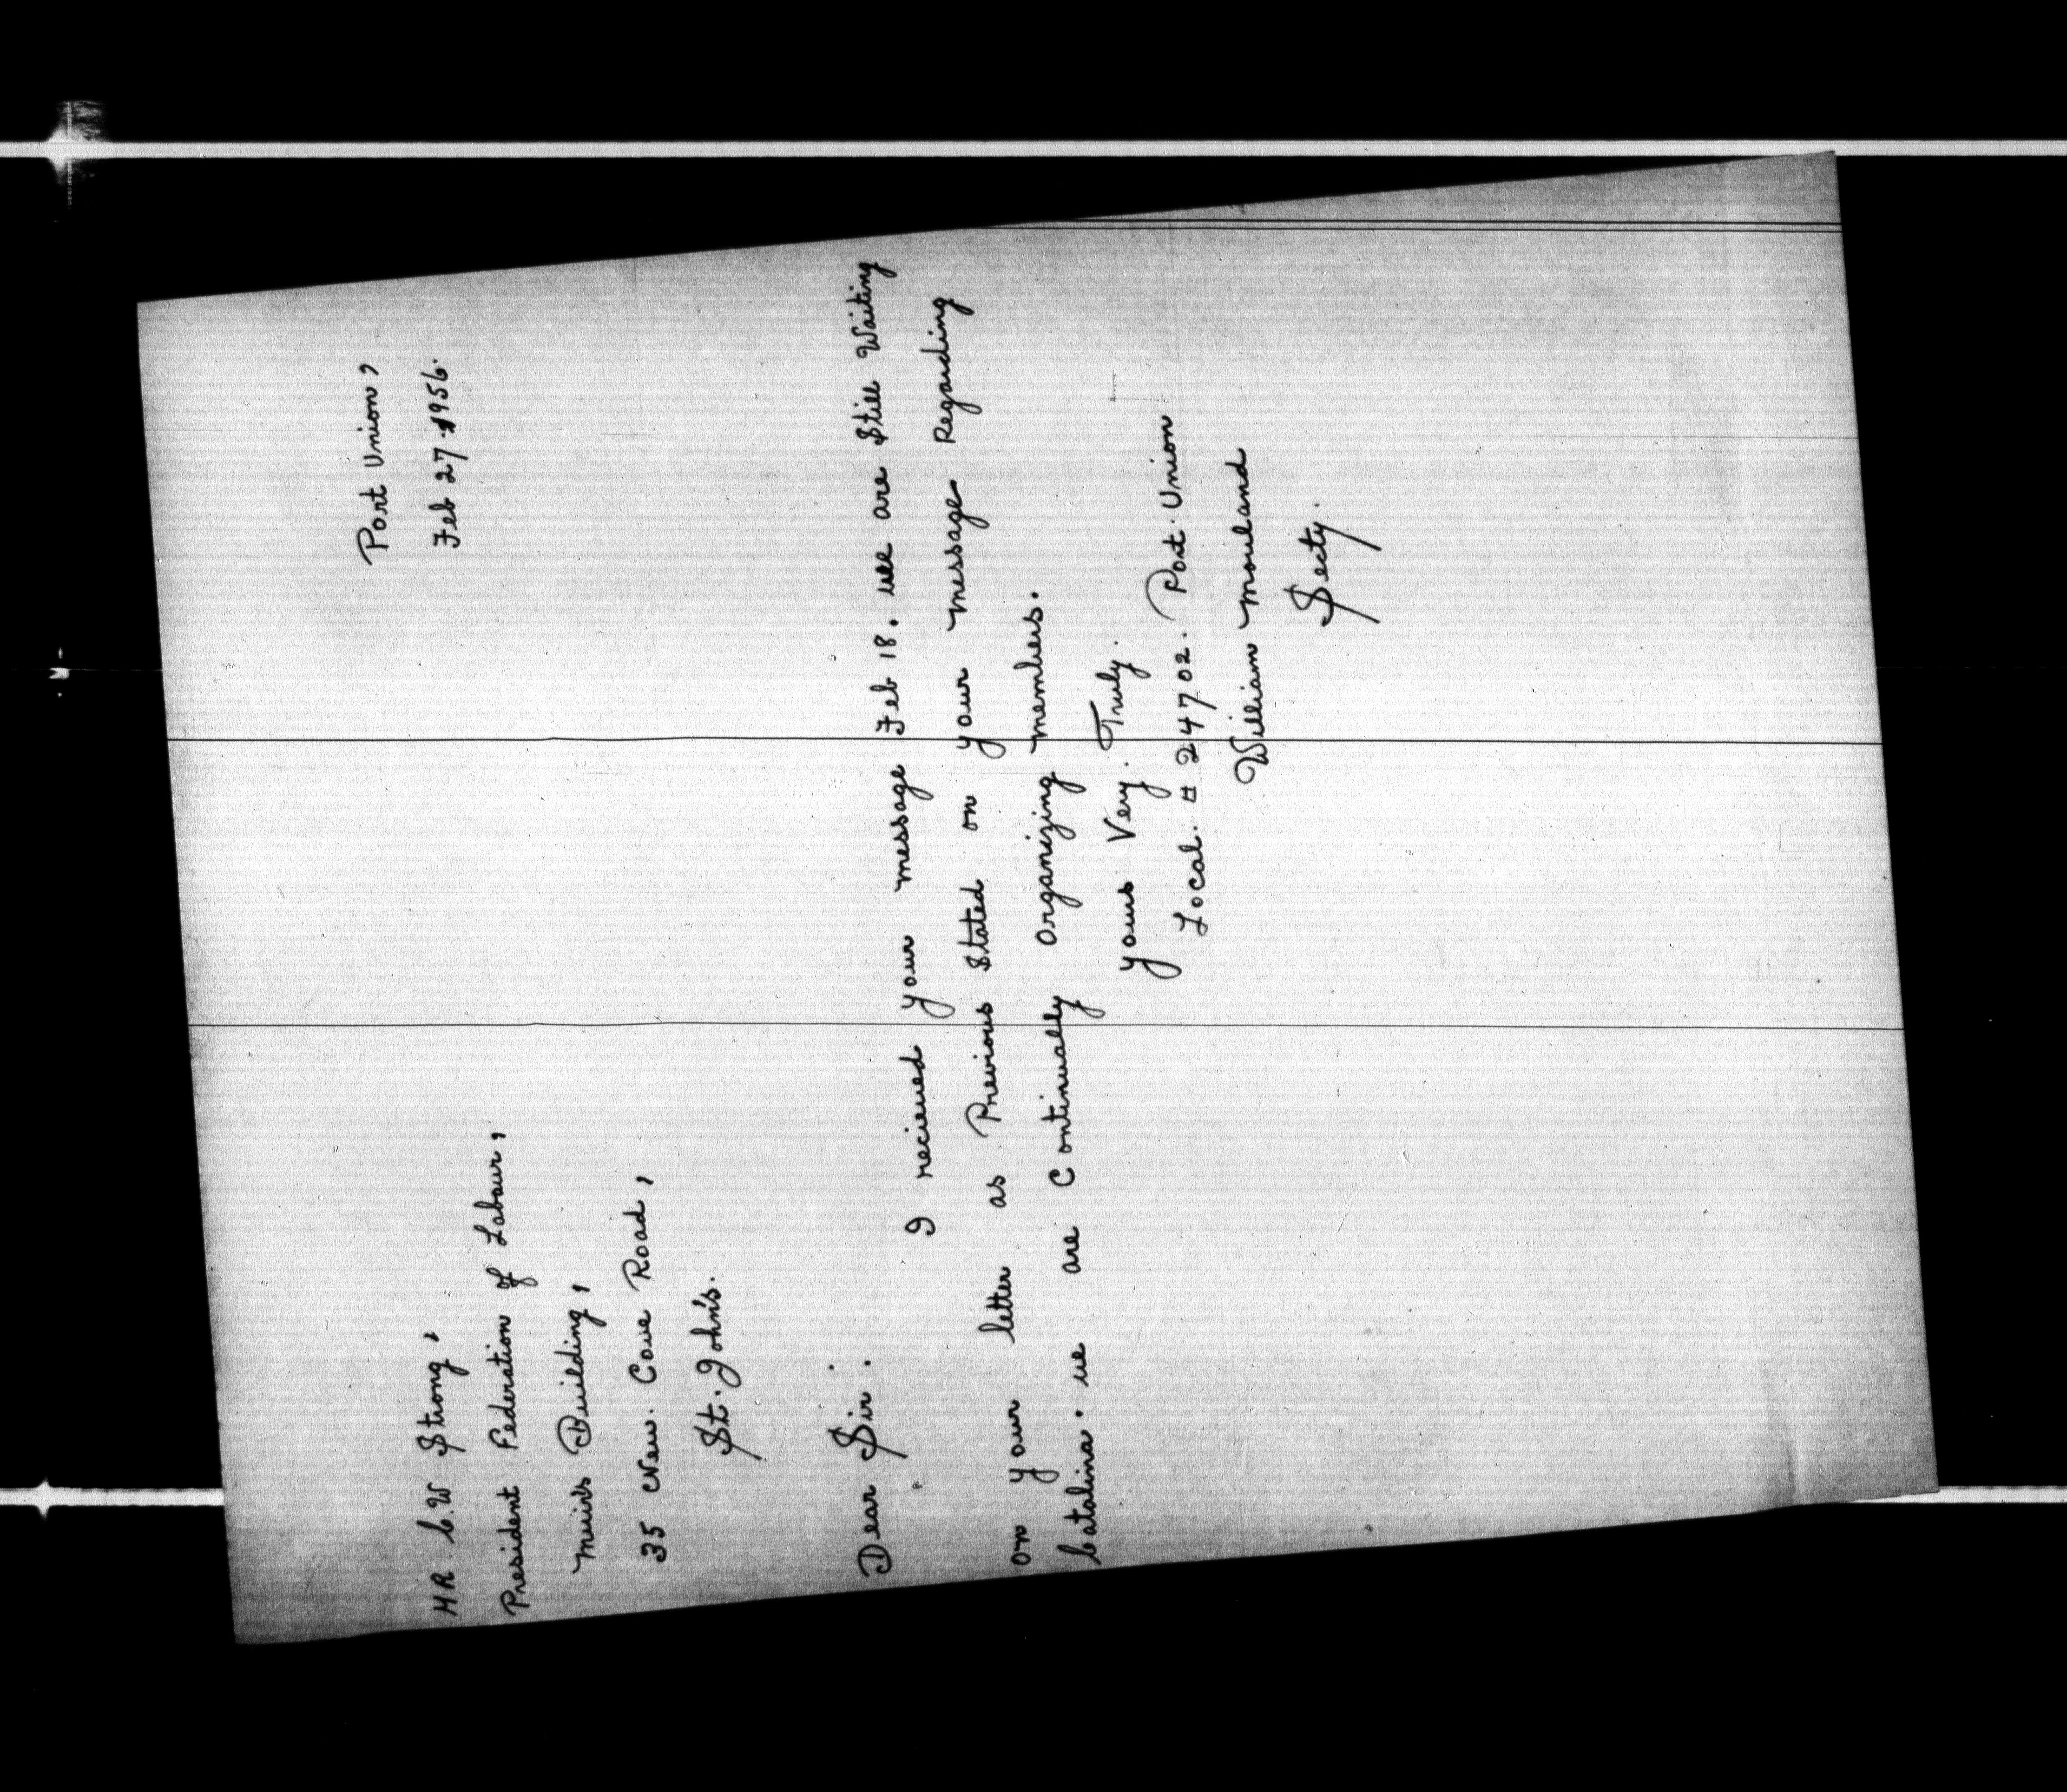 Port Union,
Feb 27. 1956.
MR C.W Strong,
President Federation of Labour,
Muirs Building,
35 New. Cove Road,
St. John's.
Dear Sir.
I recieved your message Feb 18. we are Still Waiting
on your letter as Previous Stated on your message Regarding
Catalina. we are Continually Organizing members.
yours Very. Truly.
Local. # 24702. Port. Union
William Mouland
Secty.